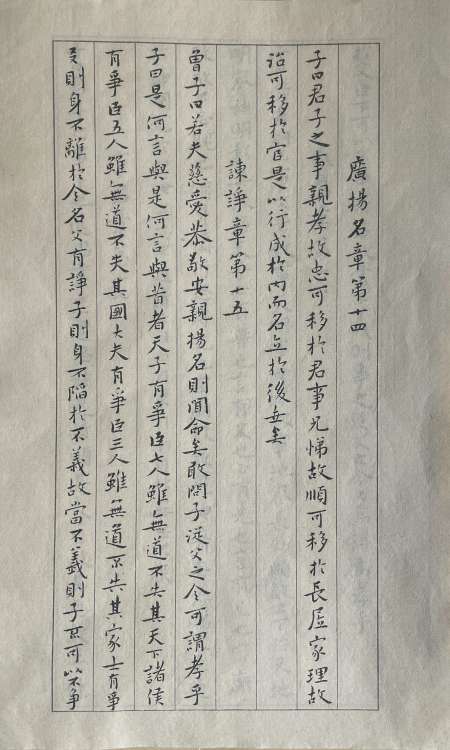 廣揚名章第十四
子曰君子之事親孝故忠可移於君事兄悌故順可移於長居家理故
治可移於官是以行成於內而名立於後世矣
諫諍章第十五
曾子曰若夫慈愛恭敬安親揚名則聞命矣敢問子從父之令可謂孝乎
子曰是何言與是何言與昔者天子有爭臣七人雖無道不失其天下諸侯
有爭臣五人雖無道不失其國大夫有爭臣三人雖無道不失其家士有爭
友則身不離於令名父有諍子則身不陷於不義故當不義則子不可以不爭